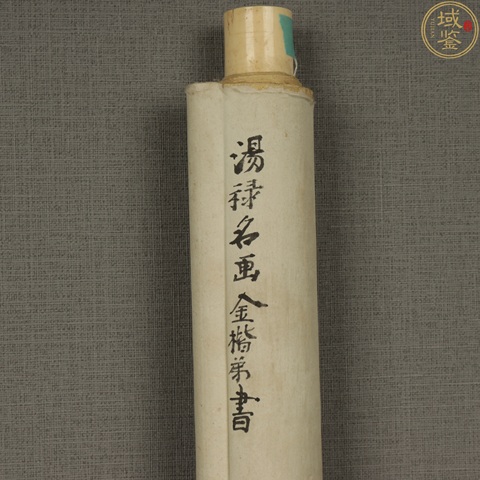 湯禄名画金楷第書
域鉴